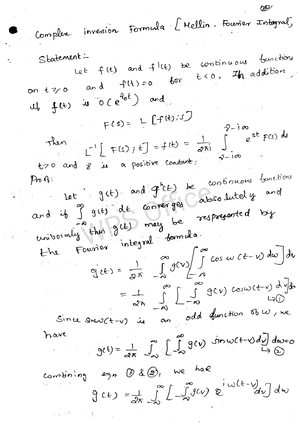 Complex inversion Formula [Mellin - Fourier Integral]
Statement:-
Let f(t) and f'(t) be continuous functions
on t ≥ 0 and f(t) = 0 for t < 0, In addition
if f(t) is O(e^{γ₀t}) and
F(s) = L[f(t); s]
Then L⁻¹[F(s); t] = f(t) = 1/2πi ∫_{γ-i∞}^{γ-i∞} e^{st} F(s) ds
t > 0 and γ is a positive constant.
Proof:
Let g(t) and g'(t) be continuous functions
and if ∫_{-∞}^{∞} g(t) dt converges absolutely and
uniformly then g(t) may be respresented by
the Fourier integral formula.
g(t) = 1/2π ∫_{-∞}^{∞} g(v) [∫_{-∞}^{∞} cos ω(t-v) dω] dv
= 1/2π ∫_{-∞}^{∞} [∫_{-∞}^{∞} g(v) cos ω(t-v) dv] dω
↳ ①
Since sin ω(t-v) is an odd function of ω, we
have
g(t) = 1/2π ∫_{-∞}^{∞} [∫_{-∞}^{∞} g(v) sin ω(t-v) dv] dω = 0
↳ ②
combining eqn ① & ②, we have
g(t) = 1/2π ∫_{-∞}^{∞} [∫_{-∞}^{∞} g(v) e^{iω(t-v)} dv] dω
WPS Office